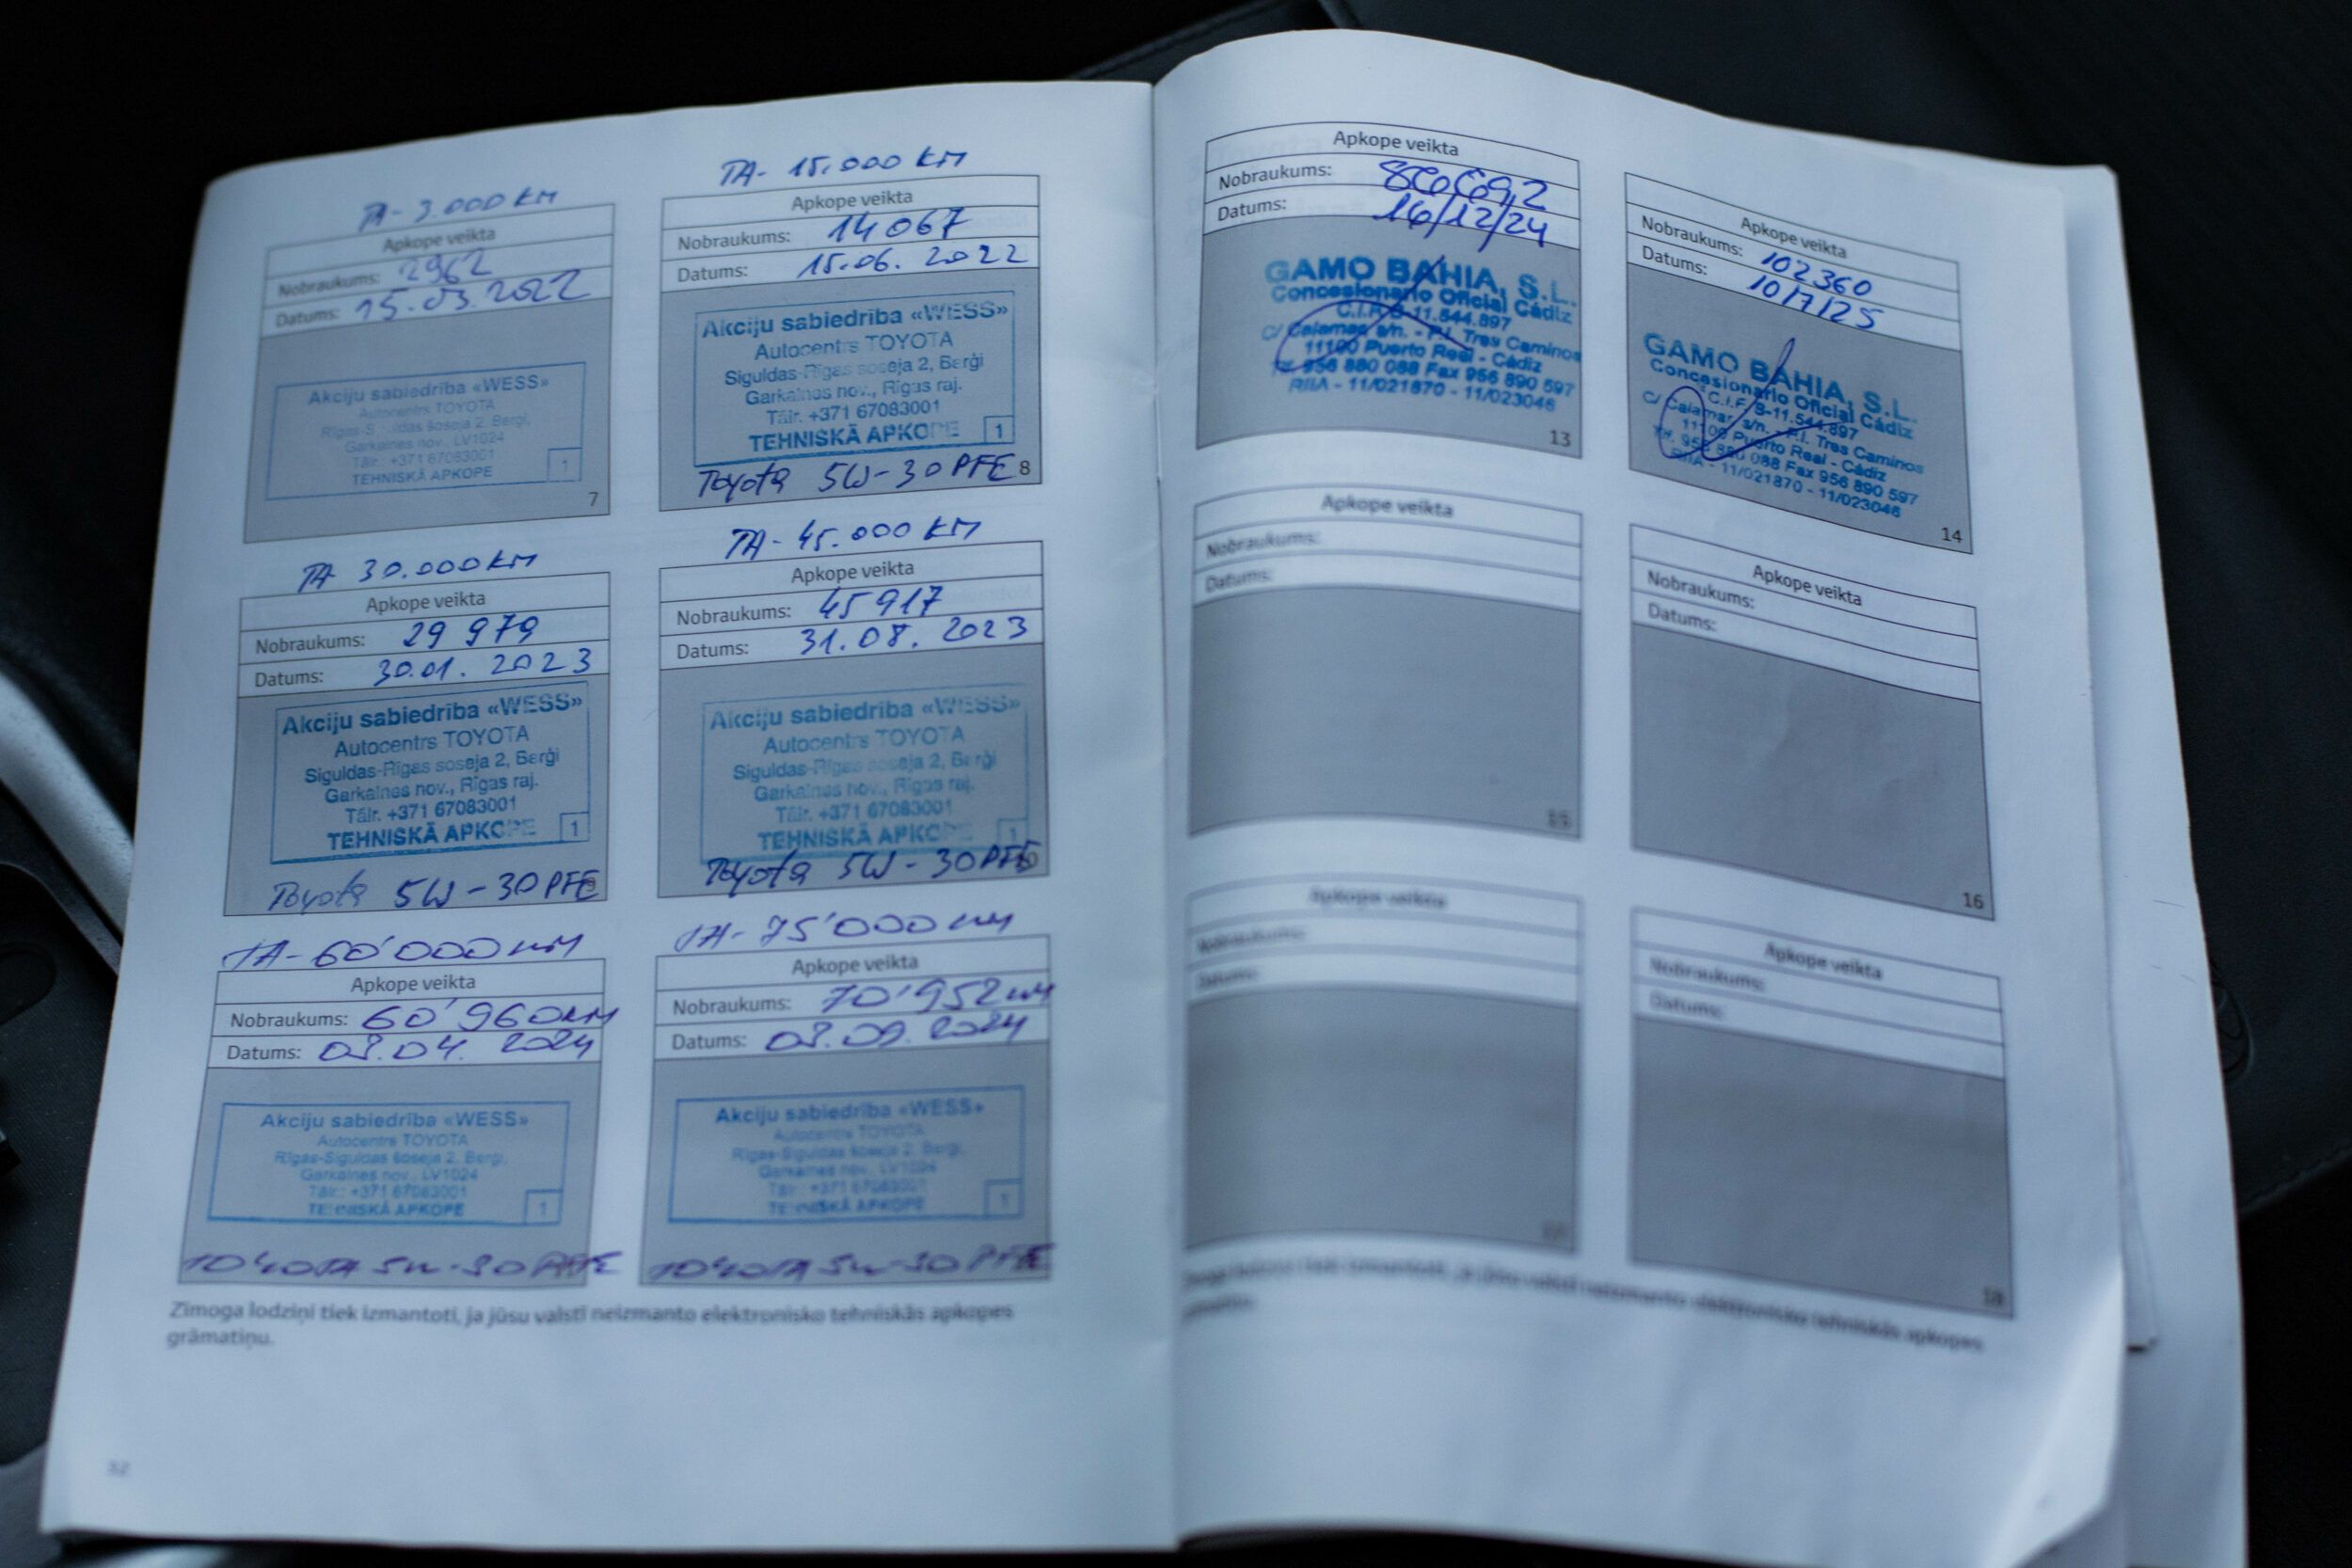 TA- 3.000 KM
Apkope veikta
Nobraukums: 2962
Datums: 15.03.2022
Akciju sabiedrība «WESS»
Autocentrs TOYOTA
šoseja 2, Berģi,
Garkalnes nov., LV1024
Tālr.: +371 67083001
TEHNISKĀ APKOPE 1
7
TA- 15.000 KM
Apkope veikta
Nobraukums: 14067
Datums: 15.06. 2022
Akciju sabiedrība «WESS»
Autocentrs TOYOTA
Siguldas-Rīgas šoseja 2, Berģi
Garkalnes nov., Rīgas raj.
Tālr. +371 67083001
TEHNISKĀ APKOPE 1
Toyota 5W-30 PFE 8
TA 30.000 KM
Apkope veikta
Nobraukums: 29 979
Datums: 30.01. 2023
Akciju sabiedrība «WESS»
Autocentrs TOYOTA
Siguldas-Rīgas šoseja 2, Berģi
Garkalnes nov., Rīgas raj.
Tālr. +371 67083001
TEHNISKĀ APKOPE 1
Toyota 5W-30 PFE
TA- 45.000 KM
Apkope veikta
Nobraukums: 45917
Datums: 31.08. 2023
Akciju sabiedrība «WESS»
Autocentrs TOYOTA
Siguldas-Rīgas šoseja 2, Berģi
Garkalnes nov., Rīgas raj.
Tālr. +371 67083001
TEHNISKĀ APKOPE 1
Toyota 5W-30 PFE
TA-60'000 KM
Apkope veikta
Nobraukums: 60'960KM
Datums: 03.04. 2024
Akciju sabiedrība «WESS»
Autocentrs TOYOTA
Rīgas-Siguldas šoseja 2, Berģi,
Garkalnes nov., LV1024
Tālr.: +371 67083001
TEHNISKĀ APKOPE 1
TOYOTA 5W-30 PFE
TA- 75'000 KM
Apkope veikta
Nobraukums: 70'952KM
Datums: 03.09. 2024
Akciju sabiedrība «WESS»
Autocentrs TOYOTA
Rīgas-Siguldas šoseja 2, Berģi,
Garkalnes nov., LV1024
Tālr.: +371 67083001
TEHNISKĀ APKOPE 1
TOYOTA 5W-30 PFE
Zīmoga lodziņi tiek izmantoti, ja jūsu valstī neizmanto elektronisko tehniskās apkopes
grāmatiņu.
32
Apkope veikta
Nobraukums:
Datums: 16/12/24
GAMO BAHIA, S.L.
Concesionario Oficial Cádiz
C.I.F. B-11.544.897
C/ Calamar s/n. - P.I. Tres Caminos
11100 Puerto Real - Cádiz
Tlf. 956 880 088 Fax 956 890 597
RIIA - 11/021870 - 11/023046
13
Apkope veikta
Nobraukums: 102360
Datums: 10/7/25
GAMO BAHIA, S.L.
Concesionario Oficial Cádiz
C.I.F. B-11.544.897
C/ Calamar s/n. - P.I. Tres Caminos
11100 Puerto Real - Cádiz
Tlf. 956 880 088 Fax 956 890 597
RIIA - 11/021870 - 11/023046
14
Apkope veikta
Nobraukums:
Datums:
15
Apkope veikta
Nobraukums:
Datums:
16
Apkope veikta
Nobraukums:
Datums:
17
Apkope veikta
Nobraukums:
Datums:
18
Zīmoga lodziņi tiek izmantoti, ja jūsu valstī neizmanto elektronisko tehniskās apkopes
grāmatiņu.